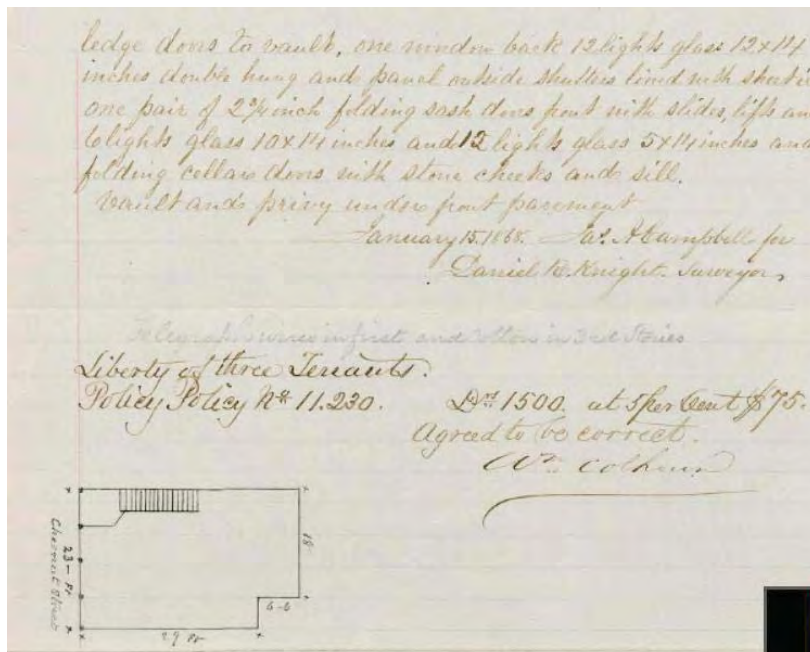 ledge doors to vault, one window back 12 lights glass 12x14
inches double hung and panel outside shutters lined with sheet i
one pair of 2 3/4 inch folding sash doors front with slides, lifts an
6 lights glass 10x14 inches and 12 lights glass 5x14 inches and
folding cellar doors with stone cheeks and sill.
Vault and privy under front pavement
January 15. 1868. Jas. A Campbell for
Daniel R. Knight. Surveyor,
Telegraph wires in first and Cotton in 3rd Stories
Liberty of three Tenants.
Policy Policy No. 11.230. 1500. at 5 per Cent $75.
Agreed to be correct.
Wm. Colhoun
18
Chesnut Street
23 - Ft
6-6
29 Ft